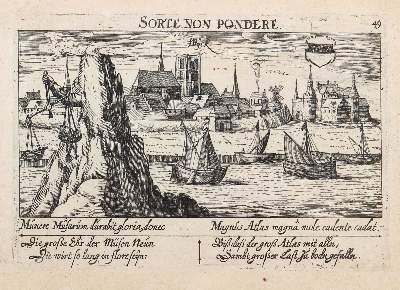 SORTE NON PONDERE.
49
Munere Musarum durabit gloria, donec
Magnus Atlas magnâ mole cadente cadat.
Die große Ehr der Musen Neun
Die wirt so lang in flore seyn:
Biß daß der groß Atlas mit alln,
Sambt großer Last zu bodn gefalln.